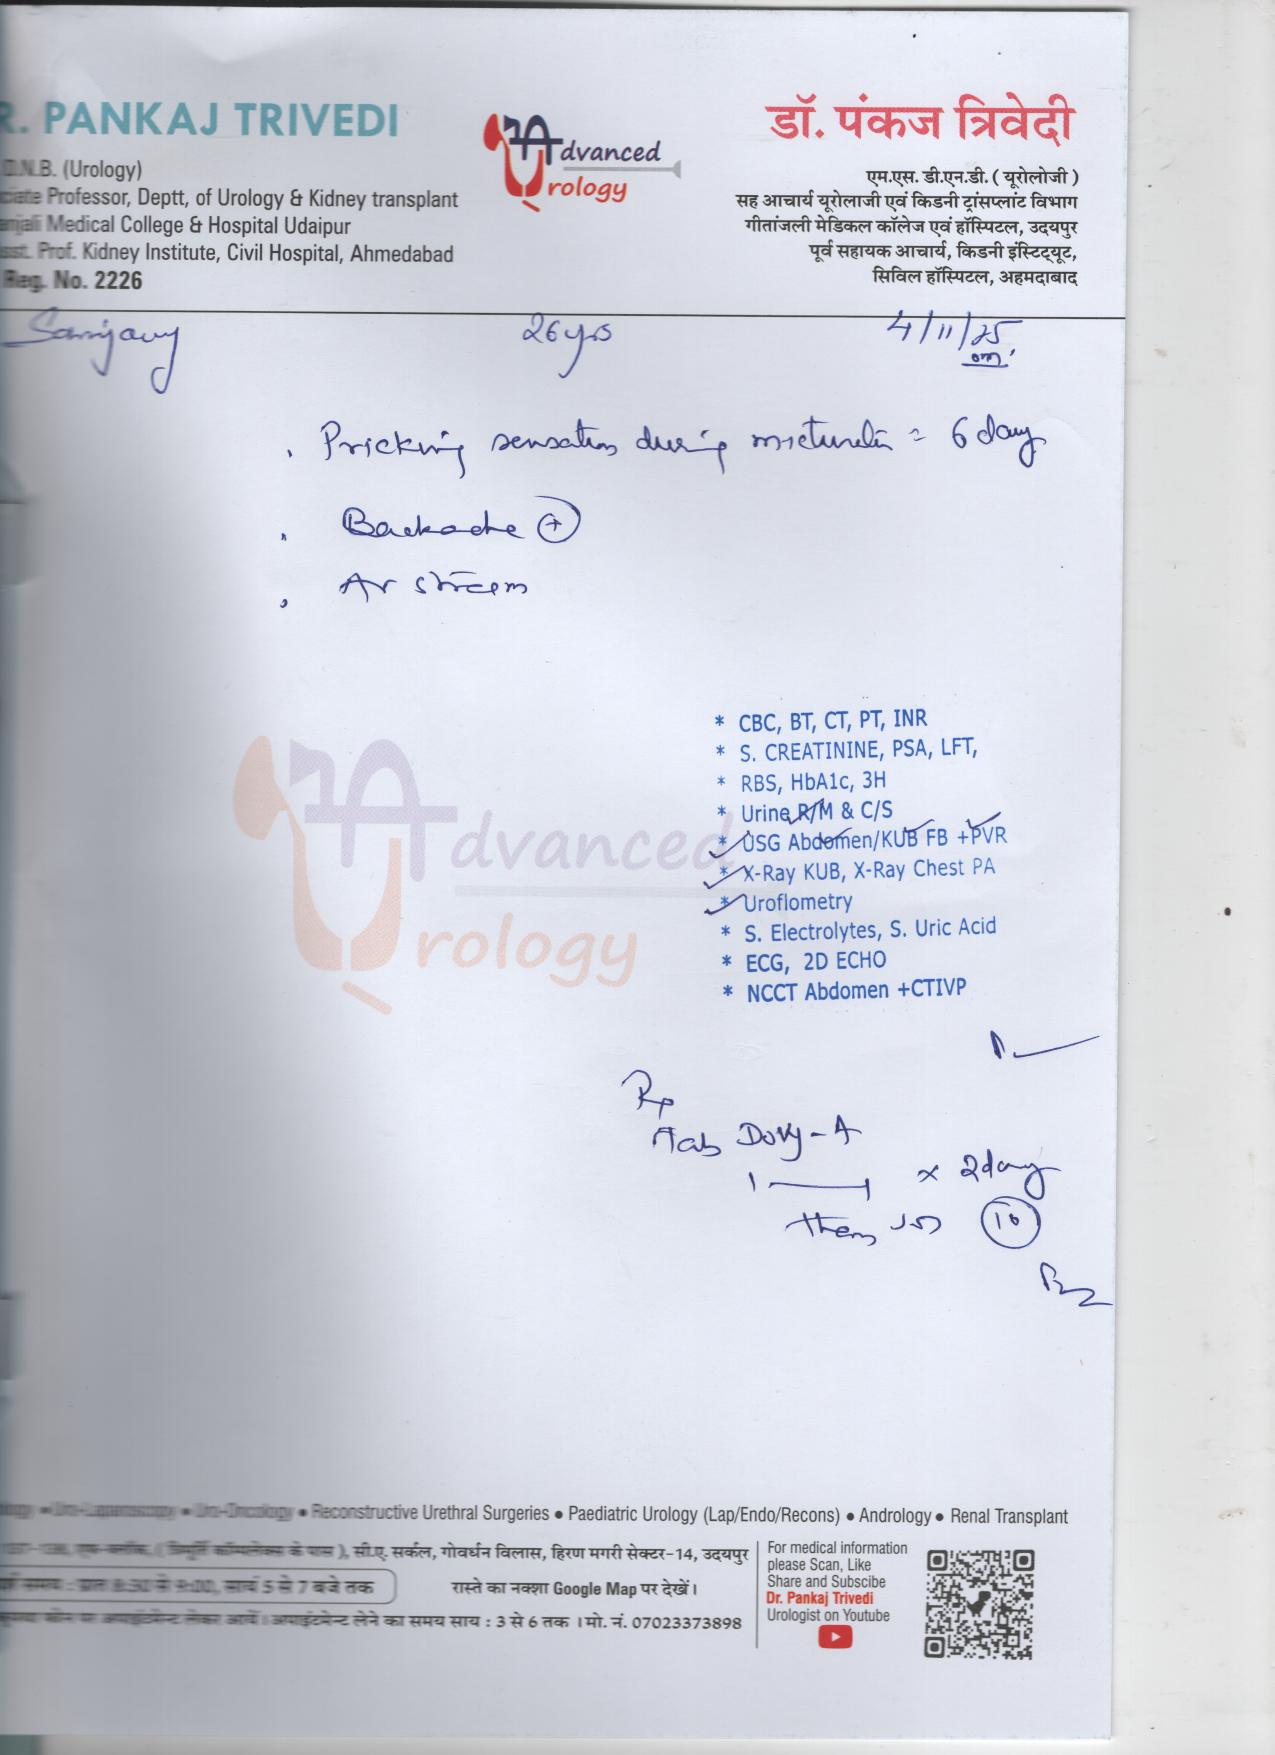 R. PANKAJ TRIVEDI
D.N.B. (Urology)
ciate Professor, Deptt, of Urology & Kidney transplant
anjali Medical College & Hospital Udaipur
sst. Prof. Kidney Institute, Civil Hospital, Ahmedabad
Reg. No. 2226
Advanced
Urology
डॉ. पंकज त्रिवेदी
एम.एस. डी.एन.डी. ( यूरोलोजी )
सह आचार्य यूरोलाजी एवं किडनी ट्रांसप्लांट विभाग
गीतांजली मेडिकल कॉलेज एवं हॉस्पिटल, उदयपुर
पूर्व सहायक आचार्य, किडनी इंस्टिट्यूट,
सिविल हॉस्पिटल, अहमदाबाद
26 yrs 4/11/25
Pricking sensation during micturition = 6 day
Backache +
stream
* CBC, BT, CT, PT, INR
* S. CREATININE, PSA, LFT,
* RBS, HbA1c, 3H
* Urine R/M & C/S
* USG Abdomen/KUB FB +PVR
* X-Ray KUB, X-Ray Chest PA
* Uroflometry
* S. Electrolytes, S. Uric Acid
* ECG, 2D ECHO
* NCCT Abdomen +CTIVP
Advanced
Urology
Rp
Tab
1 — 1 x 2 day
then 10
Uro-Oncology ● Reconstructive Urethral Surgeries ● Paediatric Urology (Lap/Endo/Recons) ● Andrology ● Renal Transplant
सी.ए. सर्कल, गोवर्धन विलास, हिरण मगरी सेक्टर-14, उदयपुर
समय : प्रातः 8:30 से 9:00, सायं 5 से 7 बजे तक
रास्ते का नक्शा Google Map पर देखें।
अपाइंटमेन्ट लेकर आवें। अपाइंटमेन्ट लेने का समय साय : 3 से 6 तक । मो. नं. 07023373898
For medical information
please Scan, Like
Share and Subscibe
Dr. Pankaj Trivedi
Urologist on Youtube